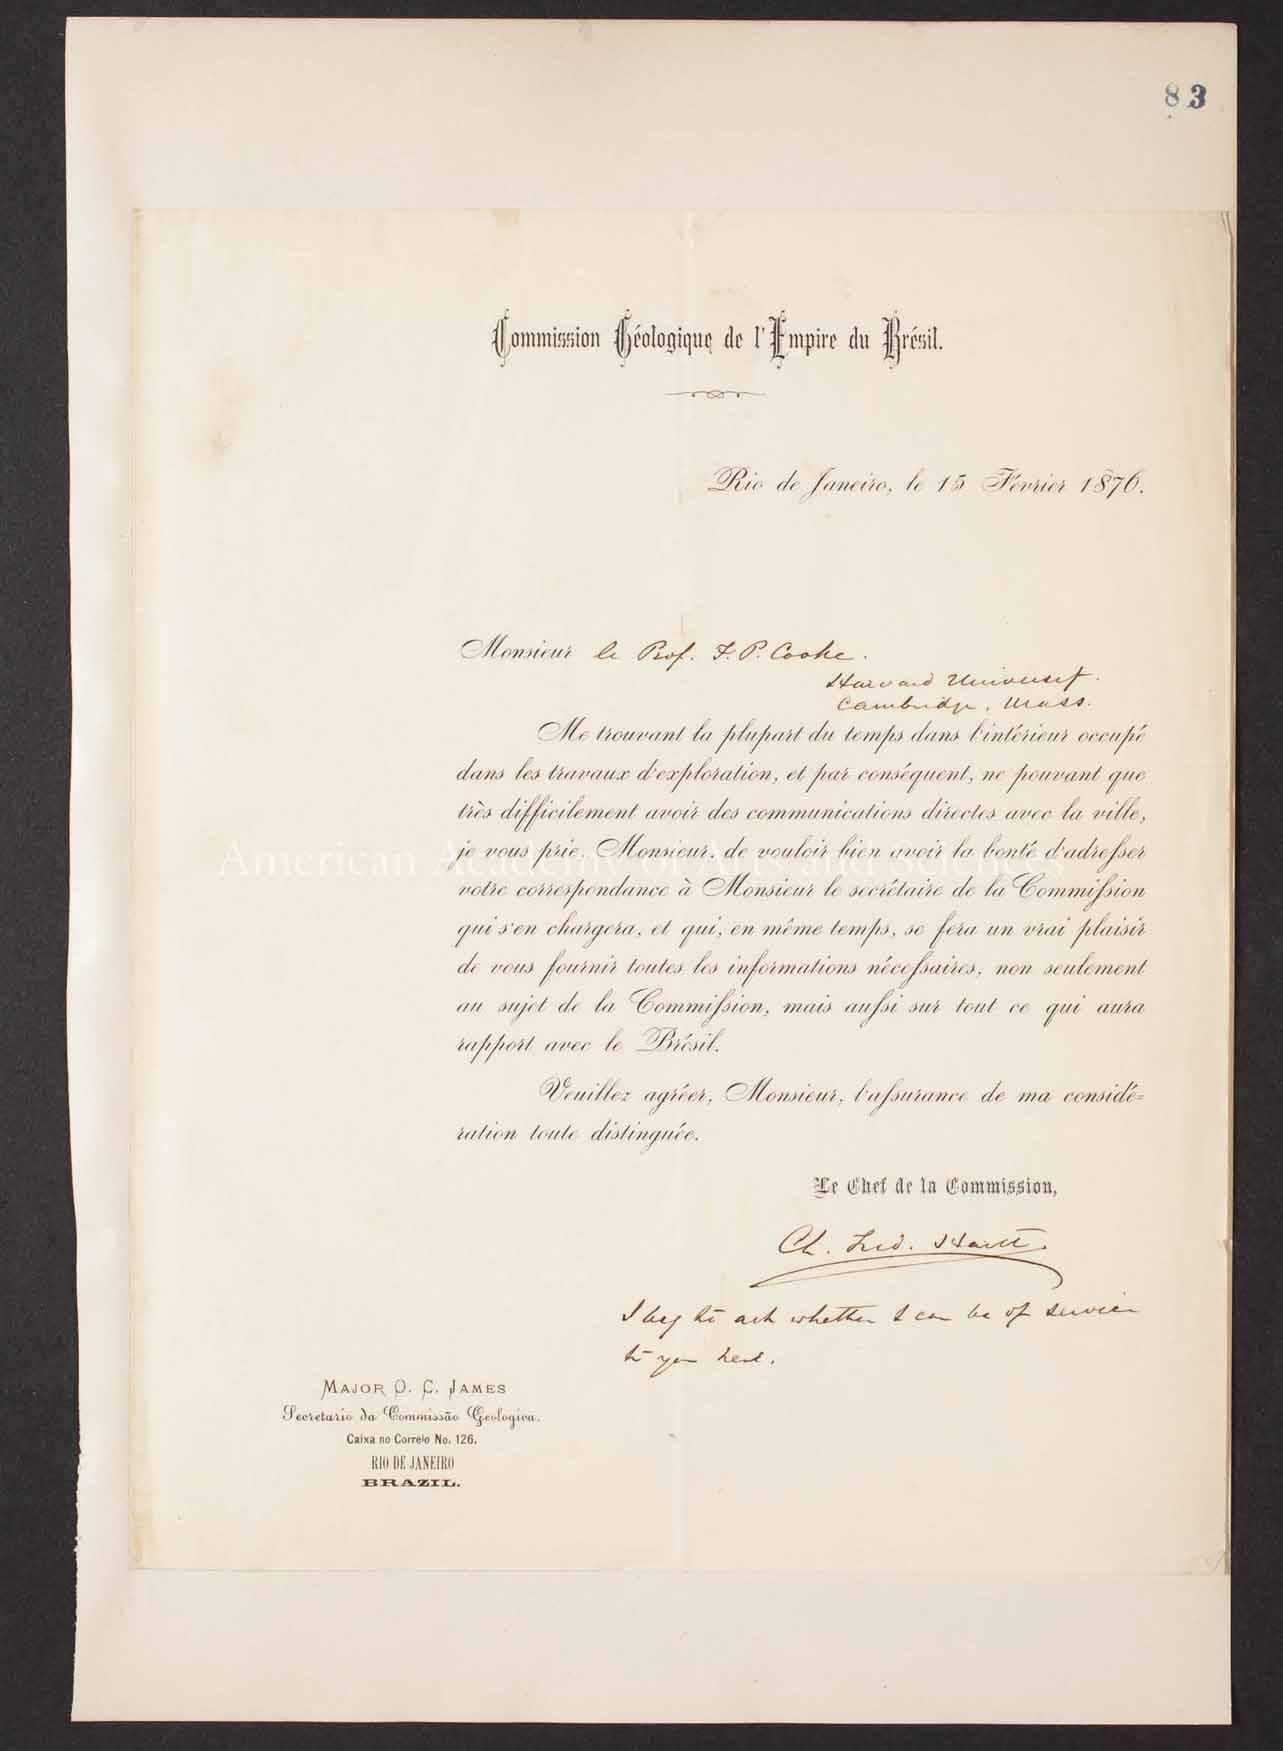 83
Commission Géologique de l'Empire du Brésil.
Rio de Janeiro, le 15 Février 1876.
Monsieur le Prof. J. P. Cooke.
Harvard University.
Cambridge, Mass.
Me trouvant la plupart du temps dans l'intérieur occupé
dans les travaux d'exploration, et par conséquent, ne pouvant que
très difficilement avoir des communications directes avec la ville,
je vous prie, Monsieur, de vouloir bien avoir la bonté d'adresser
American Academy of Arts and Sciences
votre correspondance à Monsieur le secrétaire de la Commission
qui s'en chargera, et qui, en même temps, se fera un vrai plaisir
de vous fournir toutes les informations nécessaires, non seulement
au sujet de la Commission, mais aussi sur tout ce qui aura
rapport avec le Brésil.
Veuillez agréer, Monsieur, l'assurance de ma considé=
ration toute distinguée.
Le Chef de la Commission,
Ch. Fred. Hartt.
I beg to ask whether I can be of service
to you here.
MAJOR O. C. JAMES
Secretario da Commissão Geologica.
Caixa no Correio No. 126.
RIO DE JANEIRO
BRAZIL.